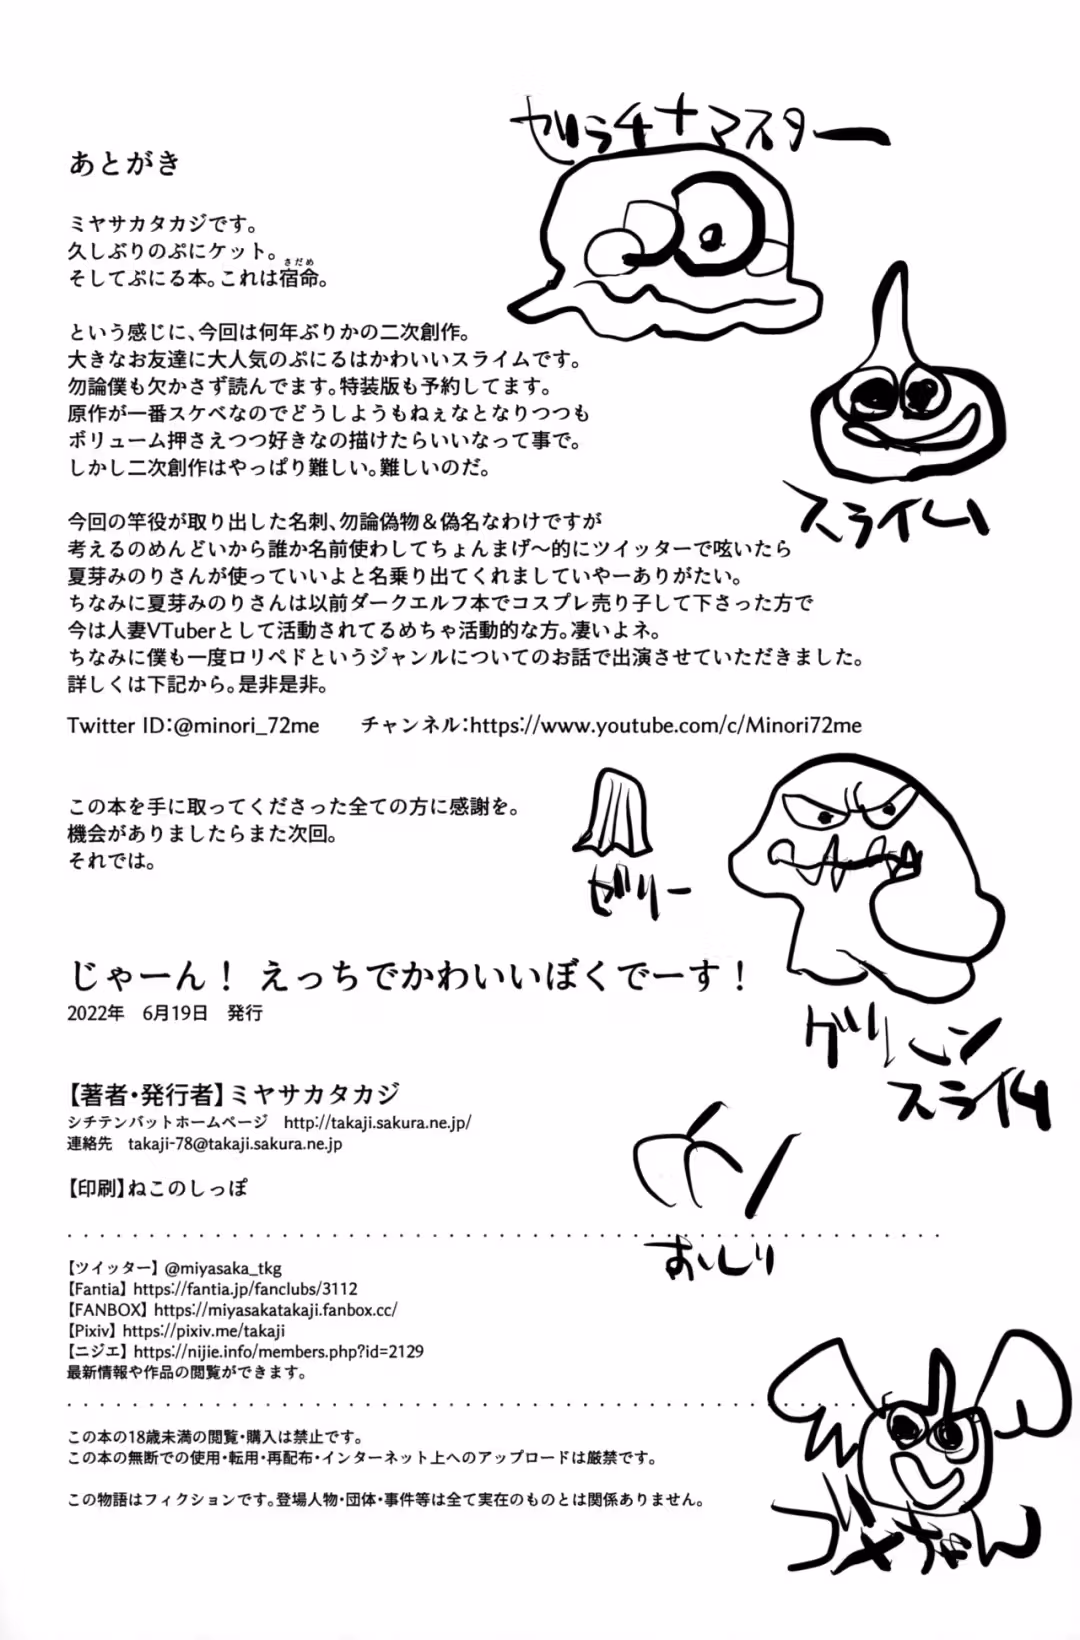 あとがき
ミヤサカタカジです。
久しぶりのぷにケット。
そしてぷにる本。これは宿命。
さだめ
という感じに、今回は何年ぶりかの二次創作。
大きなお友達に大人気のぷにるはかわいいスライムです。
勿論僕も欠かさず読んでます。特装版も予約してます。
原作が一番スケベなのでどうしようもねぇなとなりつつも
ボリューム押さえつつ好きなの描けたらいいなって事で。
しかし二次創作はやっぱり難しい。難しいのだ。
今回の竿役が取り出した名刺、勿論偽物＆偽名なわけですが
考えるのめんどいから誰か名前使わしてちょんまげ～的にツイッターで呟いたら
夏芽みのりさんが使っていいよと名乗り出てくれましていやーありがたい。
ちなみに夏芽みのりさんは以前ダークエルフ本でコスプレ売り子して下さった方で
今は人妻VTuberとして活動されてるめちゃ活動的な方。凄いよネ。
ちなみに僕も一度ロリペドというジャンルについてのお話で出演させていただきました。
詳しくは下記から。是非是非。
Twitter ID：@minori_72me　チャンネル：https://www.youtube.com/c/Minori72me
この本を手に取ってくださった全ての方に感謝を。
機会がありましたらまた次回。
それでは。
じゃーん！ えっちでかわいいぼくでーす！
2022年　6月19日　発行
【著者・発行者】ミヤサカタカジ
シチテンバットホームページ　http://takaji.sakura.ne.jp/
連絡先　takaji-78@takaji.sakura.ne.jp
【印刷】ねこのしっぽ
【ツイッター】@miyasaka_tkg
【Fantia】https://fantia.jp/fanclubs/3112
【FANBOX】https://miyasakatakaji.fanbox.cc/
【Pixiv】https://pixiv.me/takaji
【ニジエ】https://nijie.info/members.php?id=2129
最新情報や作品の閲覧ができます。
この本の18歳未満の閲覧・購入は禁止です。
この本の無断での使用・転用・再配布・インターネット上へのアップロードは厳禁です。
この物語はフィクションです。登場人物・団体・事件等は全て実在のものとは関係ありません。
ゼリラチナマスター
スライム
ゼリー
グリーン
スライム
おしり